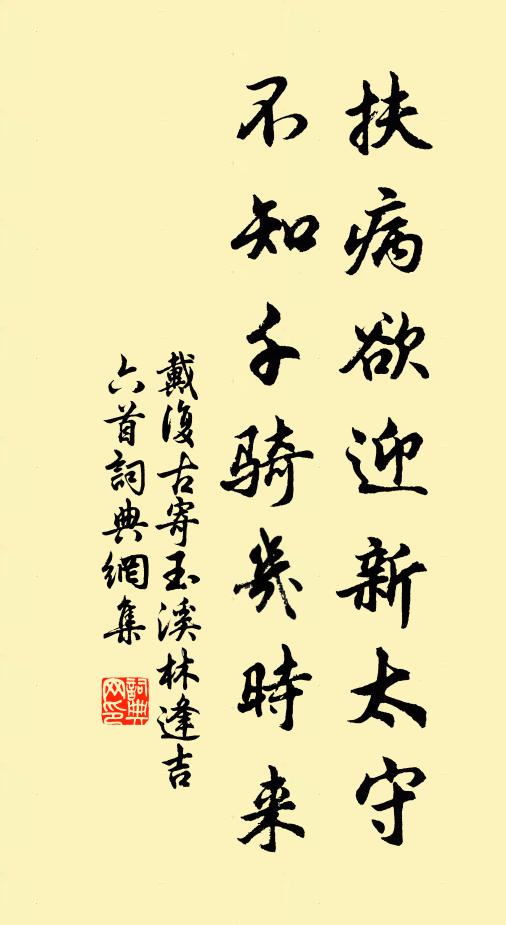 扶病欲迎新太守
不知千骑幾時来
戴復古寄玉溪林逢吉
六首詞典網集
詞典
网印